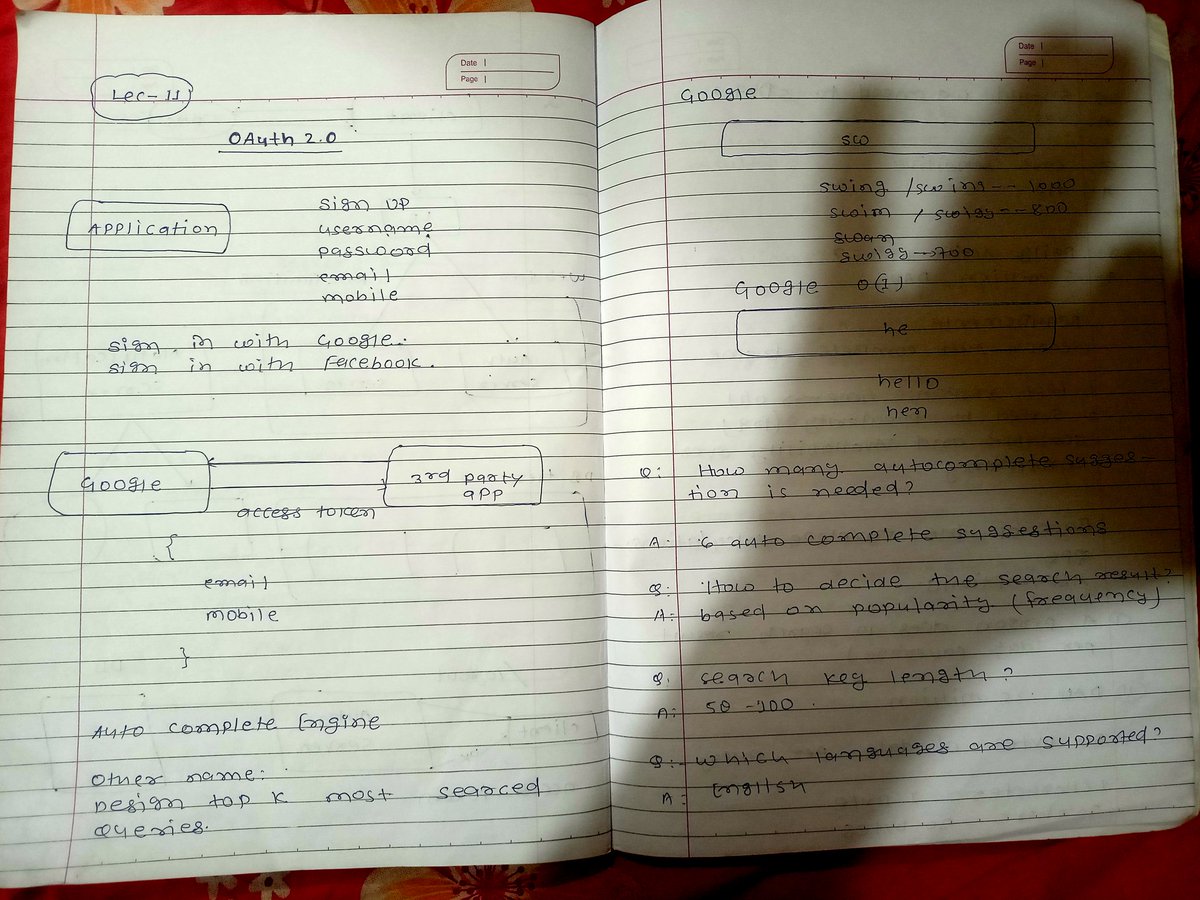 Date
Page
Lec-11
OAuth 2.0
Application
sign up
username
password
email
mobile
sign in with Google.
sign in with Facebook.
Google
3rd party
app
access token
{
email
mobile
}
Auto complete Engine
Other name:
Design top K most searced
queries.
Date
Page
Google
sw
swing / swing -- 1000
swim / swigg -- 800
swan
swigg -> 700
Google O(1)
he
hello
hen
Q: How many autocomplete sugges-
tion is needed?
A: 6 auto complete suggestions
Q: How to decide the search result?
A: based on popularity (frequency)
Q. search key length?
A: 50 -100.
Q:- which languages are supported?
A: English